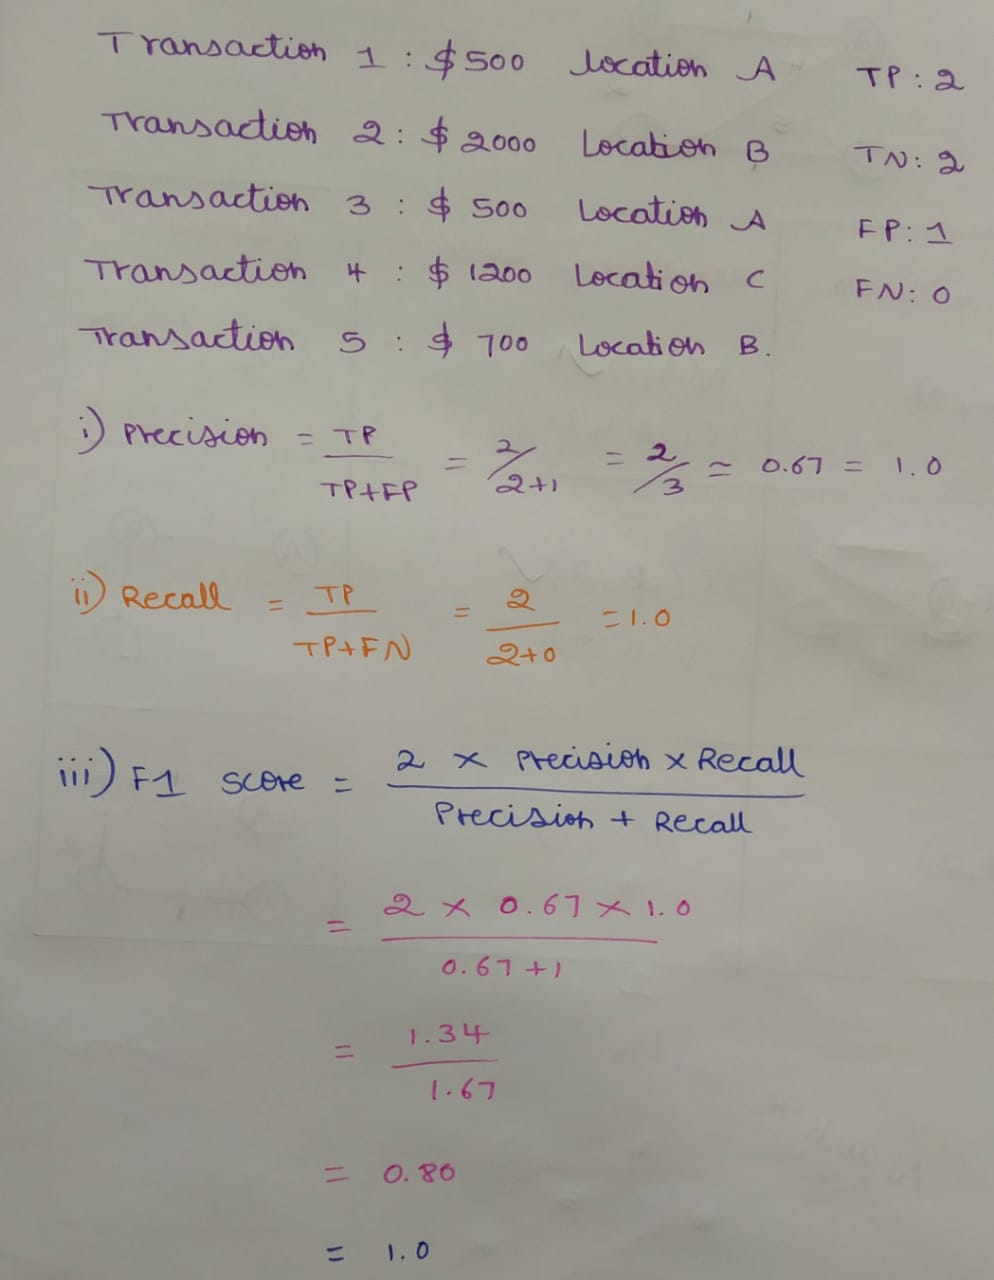 Transaction 1 : $ 500 Location A TP : 2
Transaction 2 : $ 2000 Location B TN : 2
Transaction 3 : $ 500 Location A FP : 1
Transaction 4 : $ 1200 Location C FN : 0
Transaction 5 : $ 700 Location B.
i) Precision = TP / TP+FP = 2/2+1 = 2/3 = 0.67 = 1.0
ii) Recall = TP / TP+FN = 2 / 2+0 = 1.0
iii) F1 Score = 2 × Precision × Recall / Precision + Recall
= 2 × 0.67 × 1.0 / 0.67 + 1
= 1.34 / 1.67
= 0.80
= 1.0